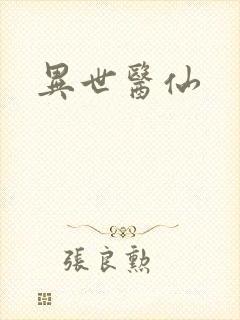 異世醫仙
張良勲